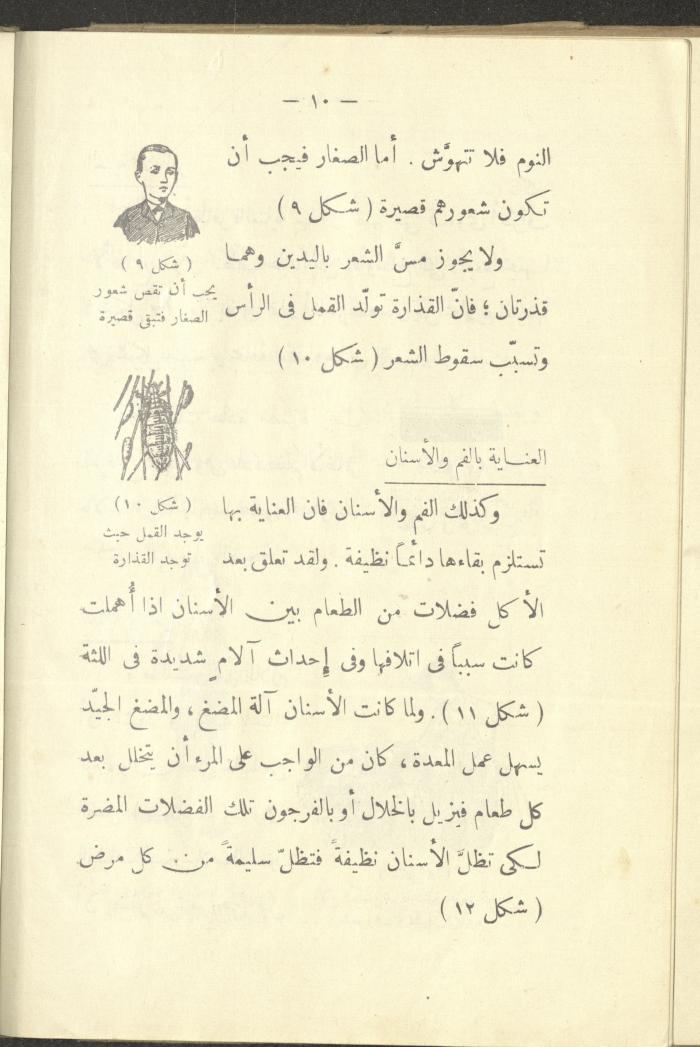 — ١٠ —
النوم فلا تتهوَّش . أما الصغار فيجب أن
تكون شعورهم قصيرة ( شكل ٩ )
ولا يجوز مسَّ الشعر باليدين وهما
قذرتان ؛ فانّ القذارة تولّد القمل فى الرأس
وتسبّب سقوط الشعر ( شكل ١٠ )
( شكل ٩ )
يجب أن تقص شعور
الصغار فتبقى قصيرة
العناية بالفم والأسنان
وكذلك الفم والأسنان فان العناية بها
تستلزم بقاءها دائماً نظيفة . ولقد تعلق بعد
( شكل ١٠ )
يوجد القمل حيث
توجد القذارة
الأكل فضلات من الطعام بين الأسنان اذا أُهملت
كانت سبباً فى اتلافها وفى إِحداث آلامٍ شديدة فى اللثة
( شكل ١١ ) . ولما كانت الأسنان آلة المضغ ، والمضغ الجيّد
يسهل عمل المعدة ، كان من الواجب على المرء أن يتخلل بعد
كل طعام فيزيل بالخلال أو بالفرجون تلك الفضلات المضرة
لكى تظلَّ الأسنان نظيفةً فتظلّ سليمةً من كل مرض
( شكل ١٢ )